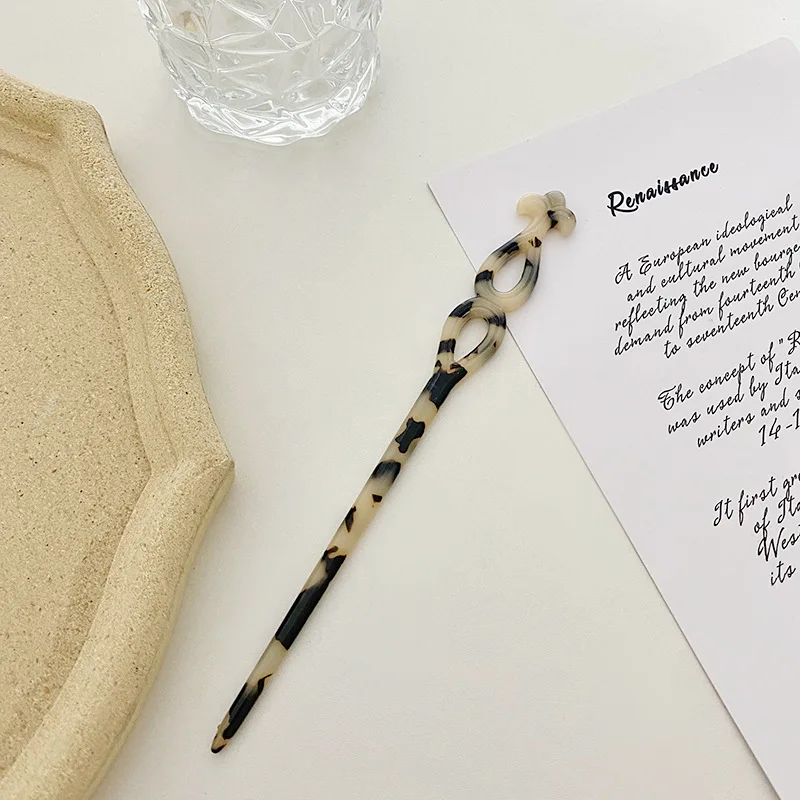 Renaissance
A European ideological
and cultural movement
reflecting the new
demand from fourteenth
to seventeenth
The concept of "
was used by
writers and
14-
It first
of
its